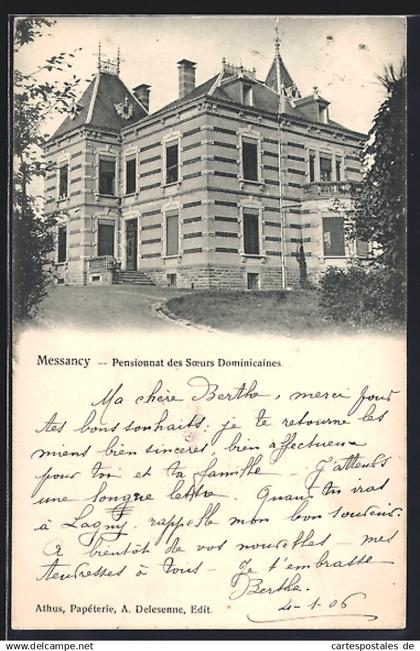 Messancy — Pensionnat des Sœurs Dominicaines
Ma chère Berthe, merci pour
tes bons souhaits, je te retourne les
miens bien sincères, bien affectueux
pour toi et ta famille - J'attends
une longue lettre. Quand tu iras
à Lagny rappelle mon bon souvenir
A bientôt de vos nouvelles - mes
tendresses à tous - Je t'embrasse
Berthe
4-1-06
Athus, Papéterie, A. Delesenne, Edit.
www.delcampe.net
cartes-postales-du-passe.com